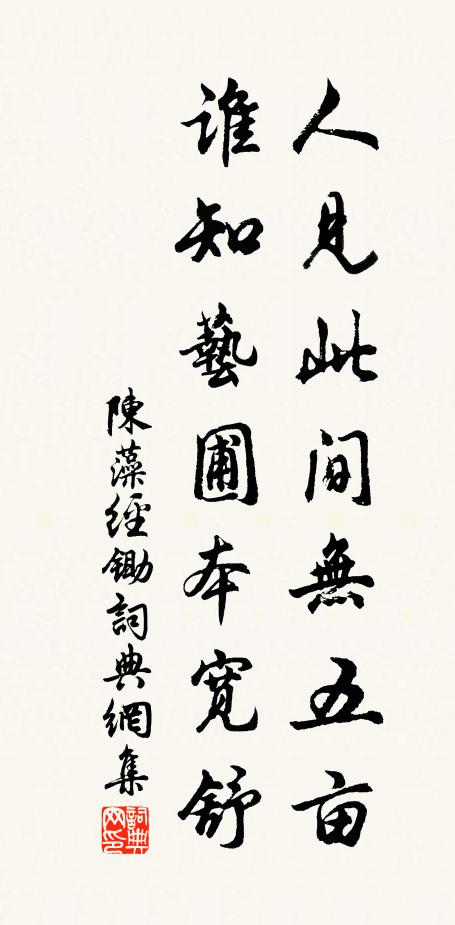 人見此间無五亩
誰知藝圃本寬舒
陳藻經鋤詞典網集
詞典网印